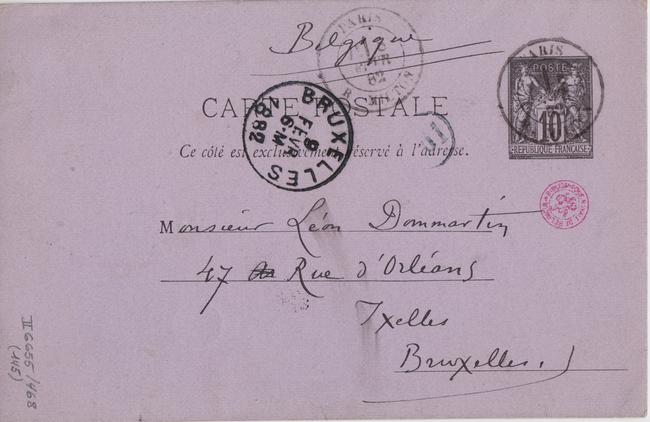 Belgique
PARIS
8
FEVR
82
R. MILTON
PARIS
POSTE
10
REPUBLIQUE FRANÇAISE
CARTE POSTALE
BRUXELLES
9
FEVR
6-M
1882
Ce côté est exclusivement réservé à l'adresse.
Monsieur Léon Dommartin
47 Rue d'Orléans
Ixelles
Bruxelles.
II 6655/468
(145)